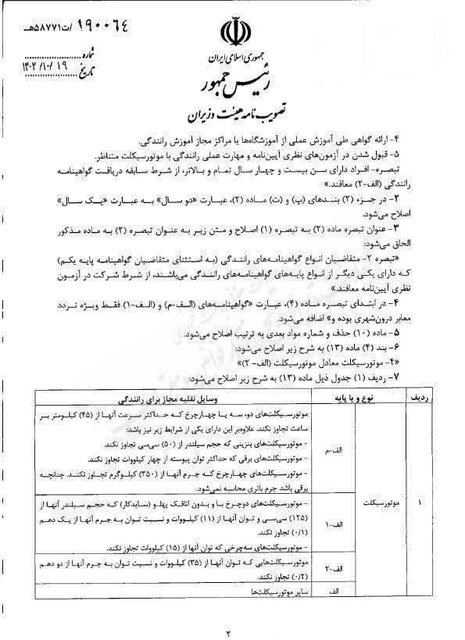 ۱۹۰۰۶۴/ت۵۸۷۷۱هـ
شماره
۱۴۰۲/۱۰/۱۹
تاریخ
جمهوری اسلامی ایران
رئیس جمهور
تصویب نامه هیئت وزیران
۴- ارائه گواهی طی آموزش عملی از آموزشگاه‌ها یا مراکز مجاز آموزش رانندگی.
۵- قبول شدن در آزمون‌های نظری آیین‌نامه و مهارت عملی رانندگی با موتورسیکلت متناظر.
تبصره- افراد دارای سن بیست و چهار سال تمام و بالاتر، از شرط سابقه دریافت گواهینامه
رانندگی (الف-۲) معافند.»
۲- در جزء (۲) بندهای (پ) و (ت) ماده (۲)، عبارت «دو سال» به عبارت «یک سال»
اصلاح می‌شود.
۳- عنوان تبصره ماده (۲) به تبصره (۱) اصلاح و متن زیر به عنوان تبصره (۲) به ماده مذکور
الحاق می‌شود:
«تبصره ۲- متقاضیان انواع گواهینامه‌های رانندگی (به استثنای متقاضیان گواهینامه پایه یکم)
که دارای یکی دیگر از انواع پایه‌های گواهینامه‌های رانندگی می‌باشند، از شرط شرکت در آزمون
نظری آیین‌نامه معافند.»
۴- در ابتدای تبصره ماده (۴)، عبارت «گواهینامه‌های (الف-م) و (الف-۱) فقط ویژه تردد
معابر درون‌شهری بوده و» اضافه می‌شود.
۵- ماده (۱۰) حذف و شماره مواد بعدی به ترتیب اصلاح می‌شود.
۶- بند (۴) ماده (۱۳) به شرح زیر اصلاح می‌شود:
«۴- موتورسیکلت معادل موتورسیکلت (الف- ۲)»
۷- ردیف (۱) جدول ذیل ماده (۱۳) به شرح زیر اصلاح می‌شود:
ردیف نوع و یا پایه وسایل نقلیه مجاز برای رانندگی
۱ موتورسیکلت
الف-م
موتورسیکلت‌های دو، سه یا چهارچرخ که حداکثر سرعت آنها از (۴۵) کیلومتر بر
ساعت تجاوز نکند. علاوه‌بر این دارای یکی از شرایط زیر نیز باشد:
- موتورسیکلت‌های بنزینی که حجم سیلندر از (۵۰) سی‌سی تجاوز نکند.
- موتورسیکلت‌های برقی که حداکثر توان پیوسته از چهار کیلووات تجاوز نکند.
- موتورسیکلت‌های چهارچرخ که جرم آنها از (۳۵۰) کیلوگرم تجاوز نکند. چنانچه
برقی باشد جرم باتری محاسبه نمی‌شود.
الف-۱
- موتورسیکلت‌های دوچرخ با و بدون اتاقک پهلو (سایدکار) که حجم سیلندر آنها از
(۱۲۵) سی‌سی و توان آنها از (۱۱) کیلووات و نسبت توان به جرم آنها از یک دهم
(۰/۱) تجاوز نکند.
- موتورسیکلت‌های سه‌چرخی که توان آنها از (۱۵) کیلووات تجاوز نکند.
الف-۲
موتورسیکلت‌هایی که توان آنها از (۳۵) کیلووات و نسبت توان به جرم آنها از دو دهم
(۰/۲) تجاوز نکند.
الف
سایر موتورسیکلت‌ها
۲